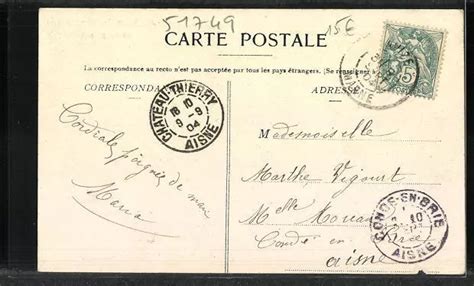 51749
15€
CARTE POSTALE
La correspondance au recto n'est pas acceptée par tous les pays étrangers. (Se renseigner à
CORRESPONDANCE
ADRESSE:
CHATEAU-THIERRY
18 10
9 - 9
04
AISNE
5c
AISNE
Cordiale poignée de main
Maria
Mademoiselle
Marthe Vigourt
Melle
Condé en
aisne
CONDE-EN-BRIE
10
AISNE